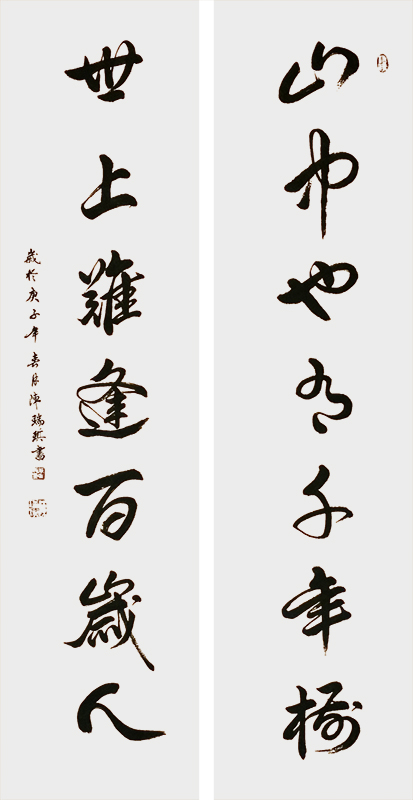 山中也有千年樹
世上難逢百歲人
歲於庚子年春月陳瑞書